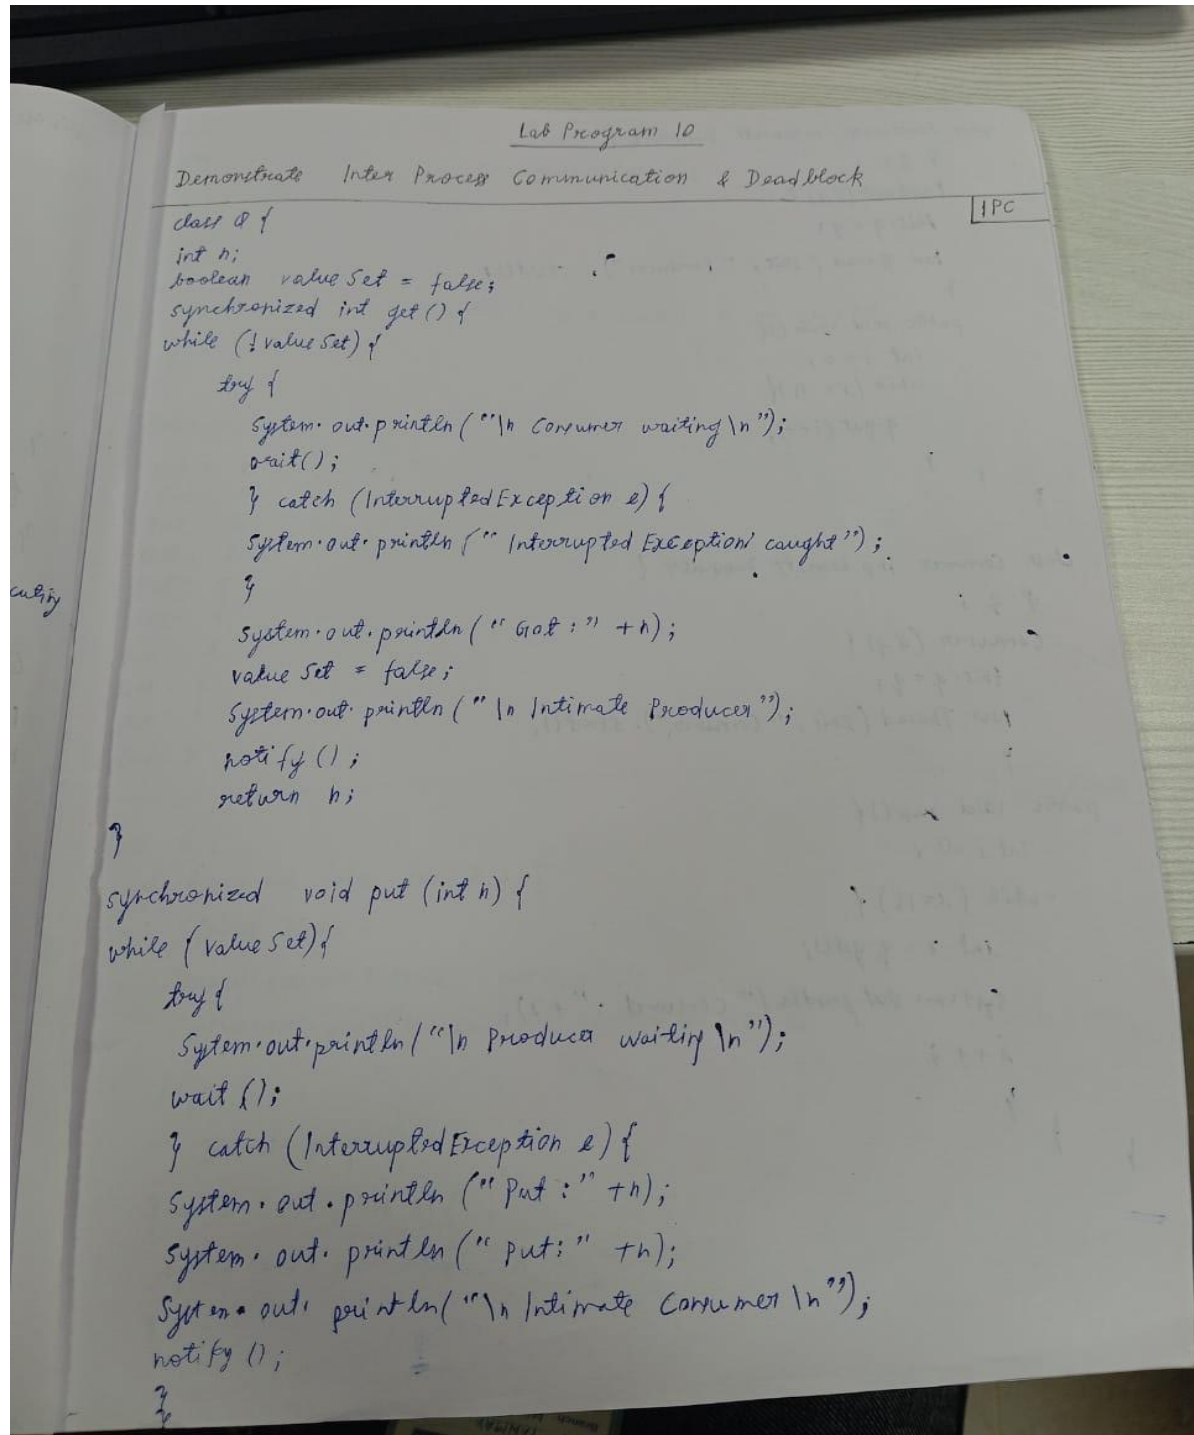 Lab Program 10
Demonstrate Inter Process Communication & Deadblock
IPC
class Q {
int n;
boolean value Set = false;
synchronized int get () {
while (! value Set) {
try {
System.out.println ("\n Consumer waiting \n");
wait();
} catch (Interrupted Exception e) {
System.out.println (" Interrupted Exception caught");
}
System.out.println (" Got : " +n);
value Set = false;
System.out.println (" \n Intimate Producer");
notify ();
return n;
}
cuting
synchronized void put (int n) {
while (value Set) {
try {
System.out.println ("\n Producer waiting \n");
wait ();
} catch (Interrupted Exception e) {
System.out.println (" Put : " +n);
System.out.println (" Put : " +n);
System.out.println ("\n Intimate Consumer \n");
notify ();
}
}